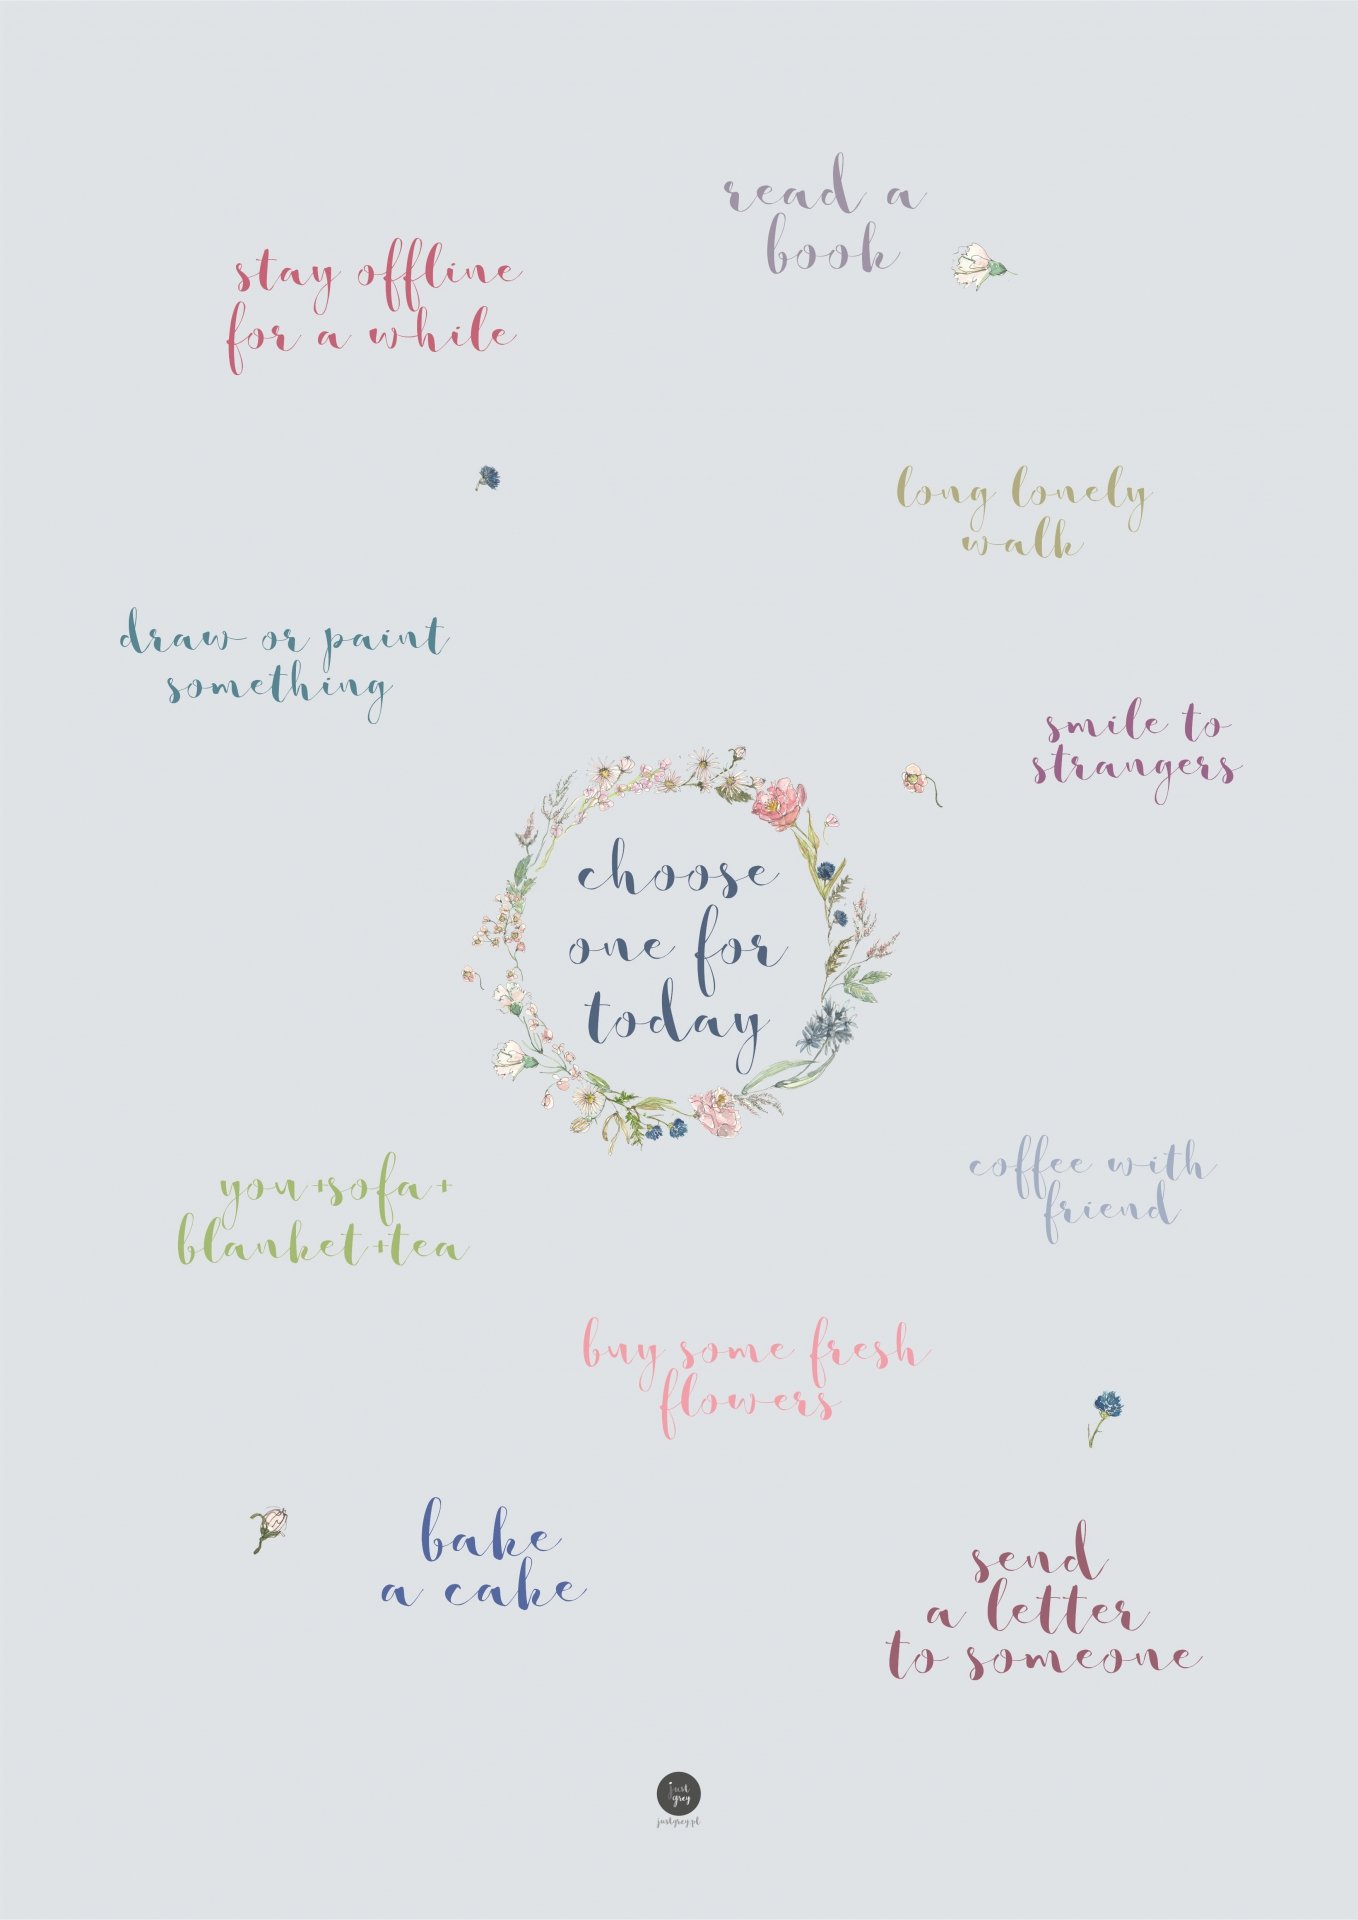 read a
book
stay offline
for a while
long lonely
walk
draw or paint
something
smile to
strangers
choose
one for
today
you+sofa+
blanket+tea
coffee with
friend
buy some fresh
flowers
bake
a cake
send
a letter
to someone
just
grey
justgrey.pl